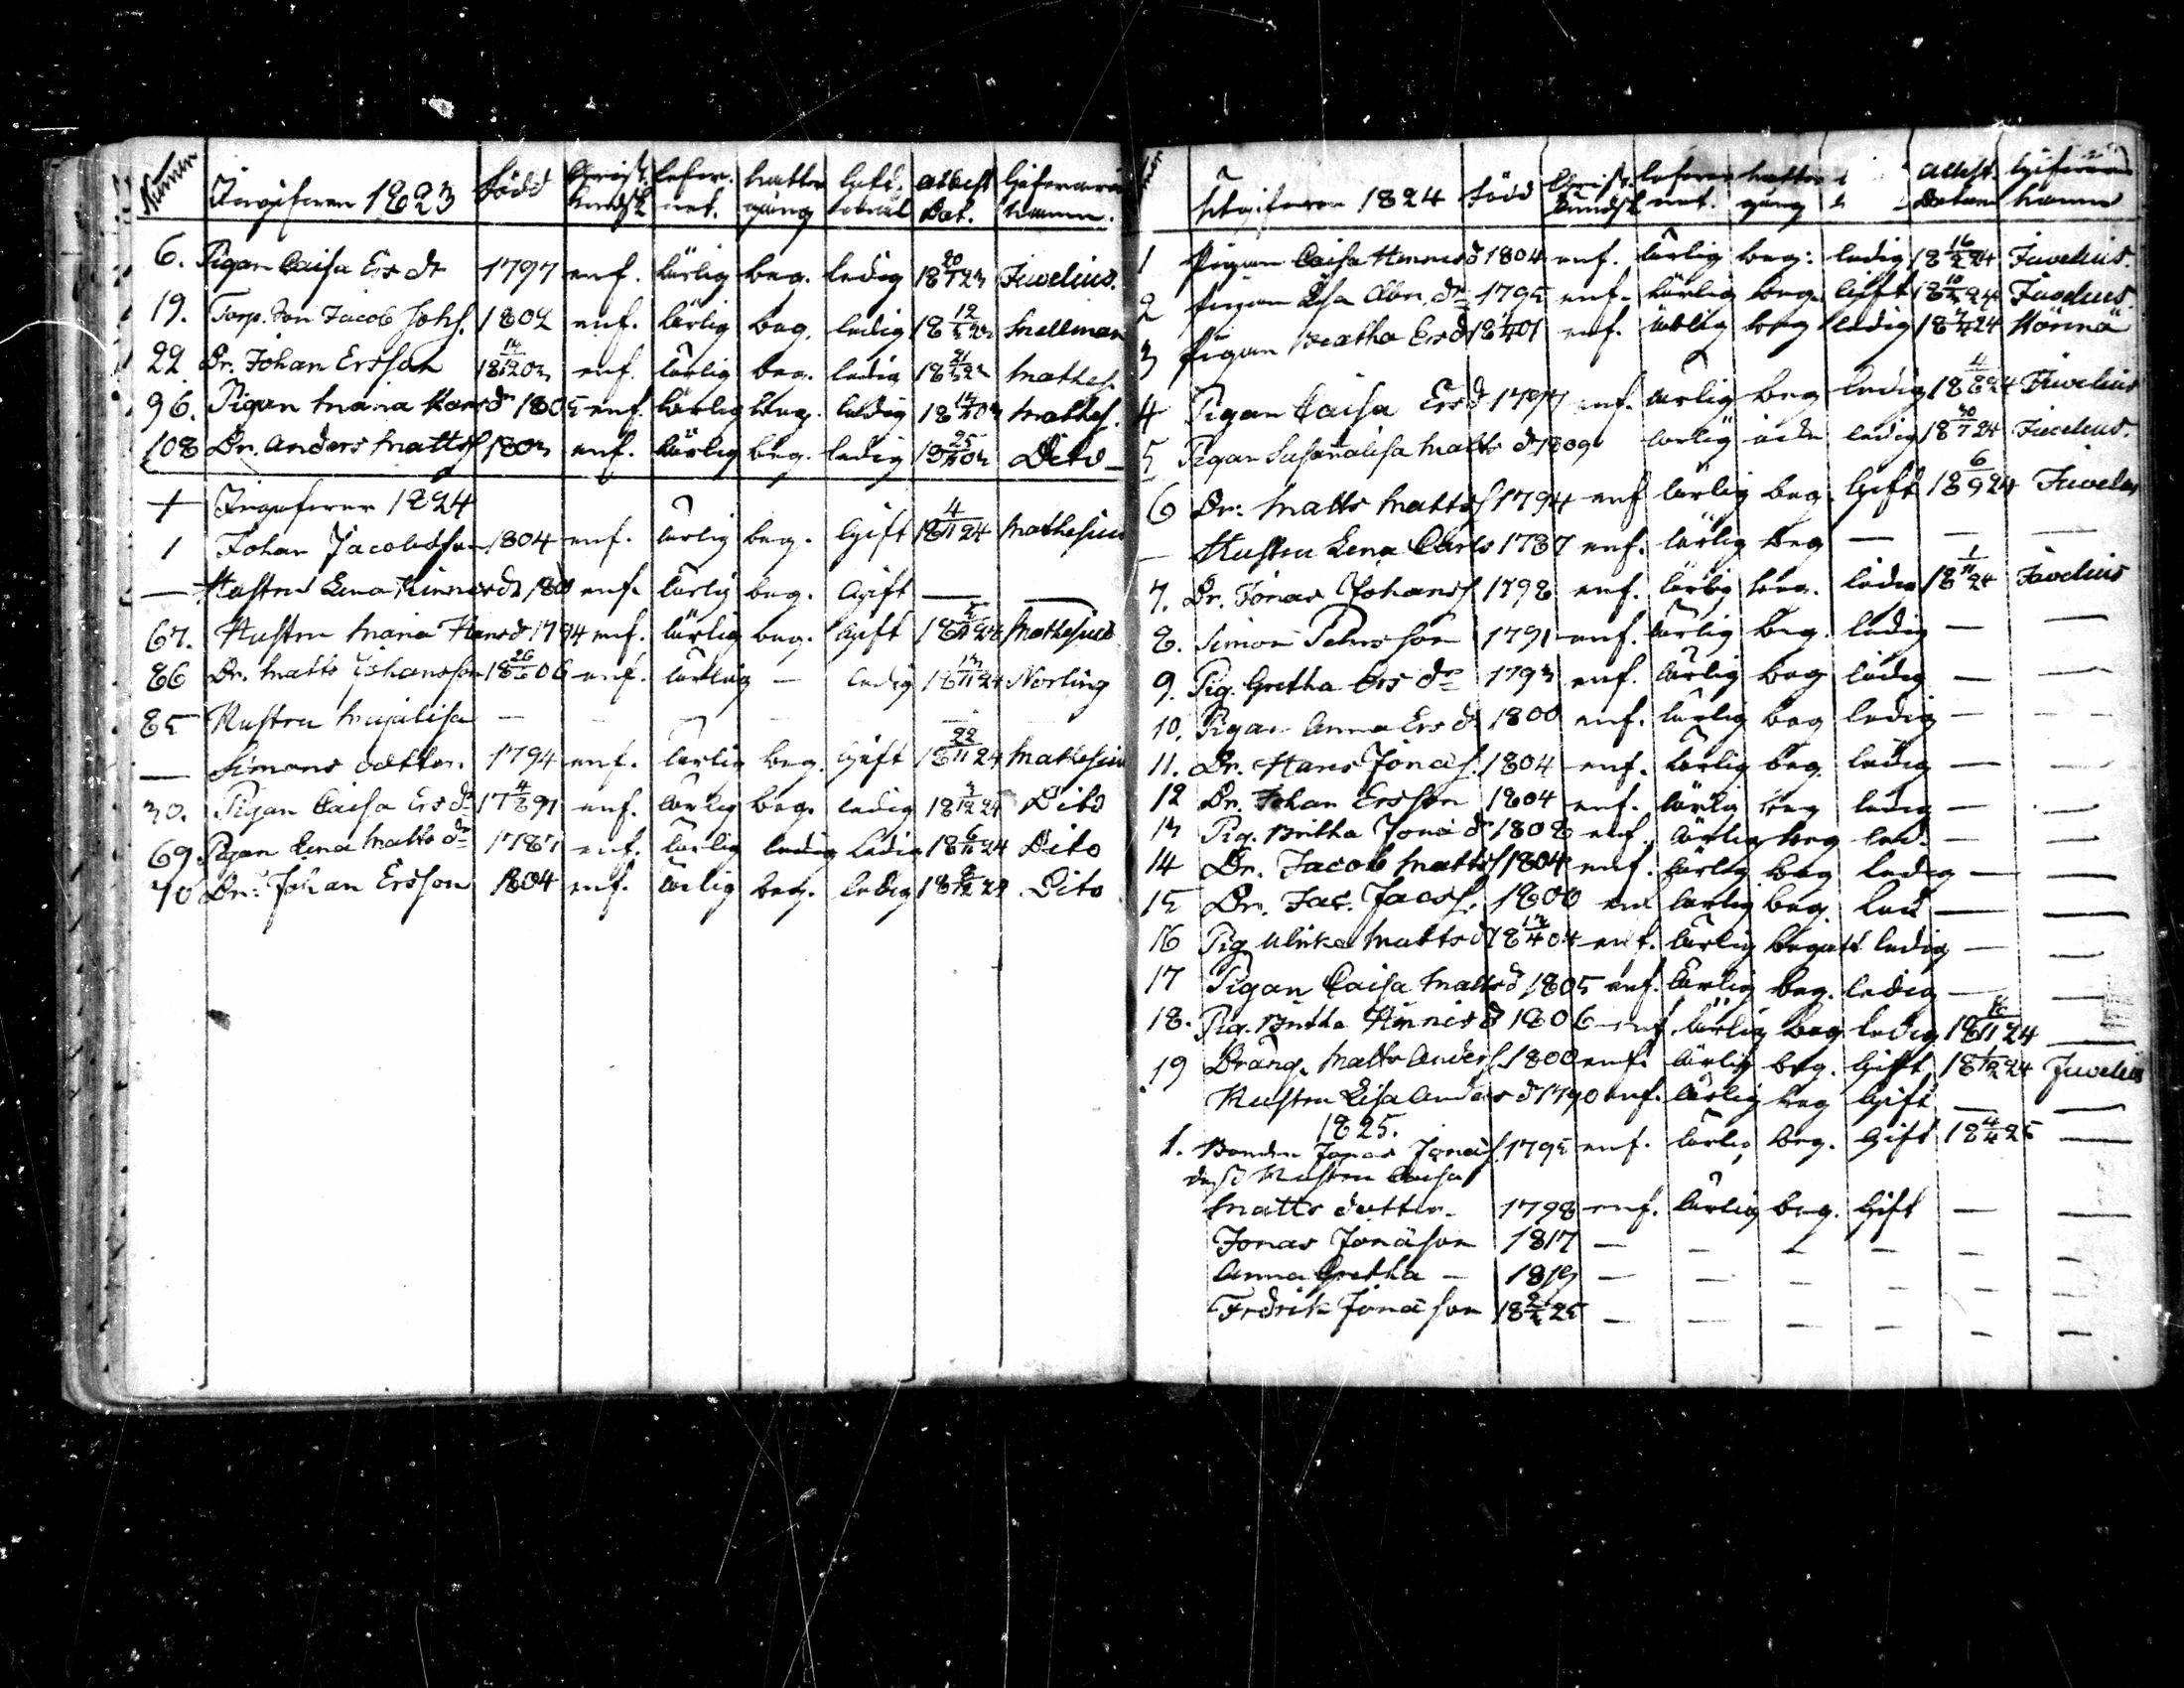 Numer Ingifvna 1823 född Christ. kundsk lefver. net. nattv. gång attest Dat. Gifvarens namn.
6. Pigan Caisa Ers dr 1797 enf. lärlig beg. ledig 18 20/1 23 Juvelius.
19. Torp. Son Jacob Johs. 1802 enf. lärlig beg. ledig 18 12/ 23 Mellman
22 Dr. Johan Ersson 18 14/12 03 enf. lärlig beg. ledig 18 21/ 23 Mathes.
96. Pigan Maria Hans dr 1805 enf. lärlig beg. ledig Mathes.
108 Dr. Anders Mattss 1803 enf. lärlig beg. ledig 18 25/ 03 Dito
Ingifvna 1824
1 Johan Jacobsson 1804 enf. lärlig beg. Gift 18 4/11 24 Mathesius
— Hustru Lena Hinnersdr enf. lärlig beg. Gift — —
67. Hustru Maria Hansdr 1794 enf. lärlig beg. Gift Mathesius
86 Dr. Matts Johansson 18 26/ 06 enf. lärlig — ledig 18 13/11 24 Norling
85 Hustru Majalisa — — — —
— Simons dotter. 1794 enf. lärlig beg. Gift 18 22/11 24 Mathesius
30. Pigan Caisa Ers dr 17 4/8 91 enf. lärlig beg. ledig 18 3/12 24 Dito
69 Pigan Lena Matts dr 1787 enf. lärlig ledig ledig 18 6/ 24 Dito
70 Dr: Johan Ersson 1804 enf. lärlig beg. ledig 18 6/12 24 Dito
Utgifvna 1824 född Christ. kundsk lefver net. nattv gång Attest. Datum Gifvarens namn
1 Pigan Caisa Hinnersd 1804 enf. lärlig beg: ledig 18 16/2 24 Juvelius.
2 Pigan Lisa Abr. dr 1795 enf. lärlig beg. Gift 18 10/ 24 Juvelius.
3 Pigan Beatha Ersd 18 /4 01 enf. lärlig beg ledig 18 /4 24
4 Pigan Caisa Ersd 1797 enf. lärlig beg ledig 18 4/8 24 Juvelius
5 Pigan Susanalisa Matts dr 1809 lärlig ledig 18 30/ 24 Juvelius.
6 Dr: Matts Mattss 1794 enf lärlig beg. Gift 18 6/9 24 Juvelius
— Hustru Lena Carls 1787 enf. lärlig beg — — —
7. Dr. Jonas Johanss 1798 enf. lärlig beg. ledig 18 1/11 24 Juvelius
8. Simon 1791 enf. lärlig beg. ledig — —
9. Pig. Gretha Ers dr 1793 enf. lärlig beg ledig — —
10. Pigan Anna Ers dr 1800 enf. lärlig beg ledig — —
11. Dr. Hans Jonass. 1804 enf. lärlig beg. ledig — —
12 Dr. Johan Ersson 1804 enf. lärlig beg ledig — —
13 Pig. Britha Jona dr 1808 enf. lärlig beg led. — —
14 Dr. Jacob Mattss 1804 enf. lärlig beg ledig — —
15 Dr. Jac. Jacss. 1800 enf lärlig beg. led — —
16 Pig Ulrika Mattsd 18 13/4 04 enf. lärlig begått ledig — —
17 Pigan Caisa Mattsd 1805 enf. lärlig beg. ledig — —
18. Pig. Britha Hinnersd 1806 enf lärlig beg ledig 18 16/11 24 —
19 Dräng. Matts Anderss. 1800 enf. lärlig beg. Gift 18 1/12 24 Juvelius
Hustru Lisa Anders dr 1790 enf. lärlig beg Gift — —
1825.
1. Bonden Jonas Jonass. 1795 enf. lärlig beg. Gift 18 4/4 25 —
dess Hustru Caisa
Matts dotter. 1798 enf. lärlig beg. Gift — —
Jonas Jonäson 1817 — — — — — —
Anna Gretha — 1819 — — — — — —
Fredrik Jonäson 18 2/2 25 — — — — — —